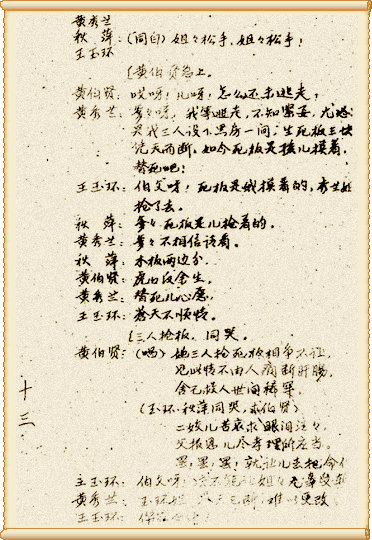 黄秀兰
秋 萍:(同白)姐々松手,姐々松手!
王玉环
(黄伯贤急上。
黄伯贤:哎呀!儿呀,怎么还未逃走?
黄秀兰:爹々呀,我等逃走,不知紧要,尤恐
灵我三人设下黑房一间,生死板三块
凭天而断,如今死板是孩儿摸着,
替死吧!
王玉环:伯父呀!死板是我摸着的,秀兰姐
抢了去。
秋 萍:爹々死板是儿抢着的。
黄秀兰:爹々不相信请看。
秋 萍:木板两边分。
黄伯贤:虎口反余生。
黄秀兰:替死儿心愿。
王玉环:苍天不顺情。
(三人抢板,同哭。
黄伯贤:(唱)她三人抢死板相争不让,
见此情不由人痛断肝肠,
舍己救人世间稀罕,
(玉环、秋萍同哭,求伯贤)
二姣儿苦哀求眼泪汪々,
父报恩儿尽孝理所应当。
罢!罢!罢!就让儿去把命
王玉环:伯父呀!姐々无辜受
黄秀兰:玉环姐 难以更改
王玉环:
十三